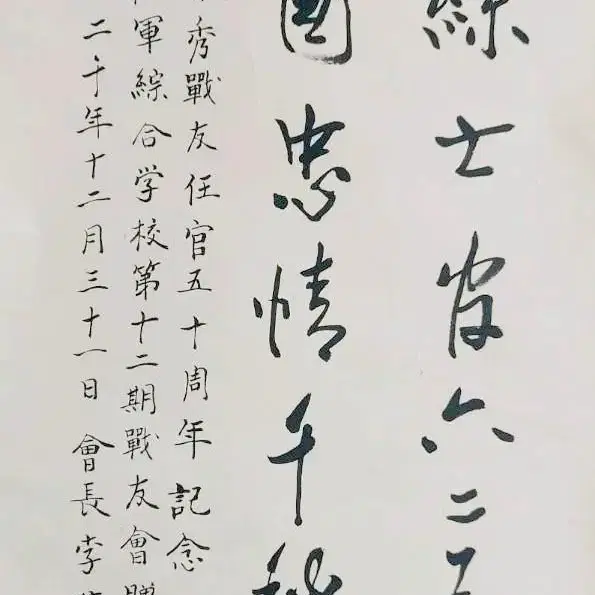 士官六二
國忠情千秋
秀戰友任官五十周年記念
軍綜合学校第十二期戰友會贈
二千年十二月三十一日 會長李